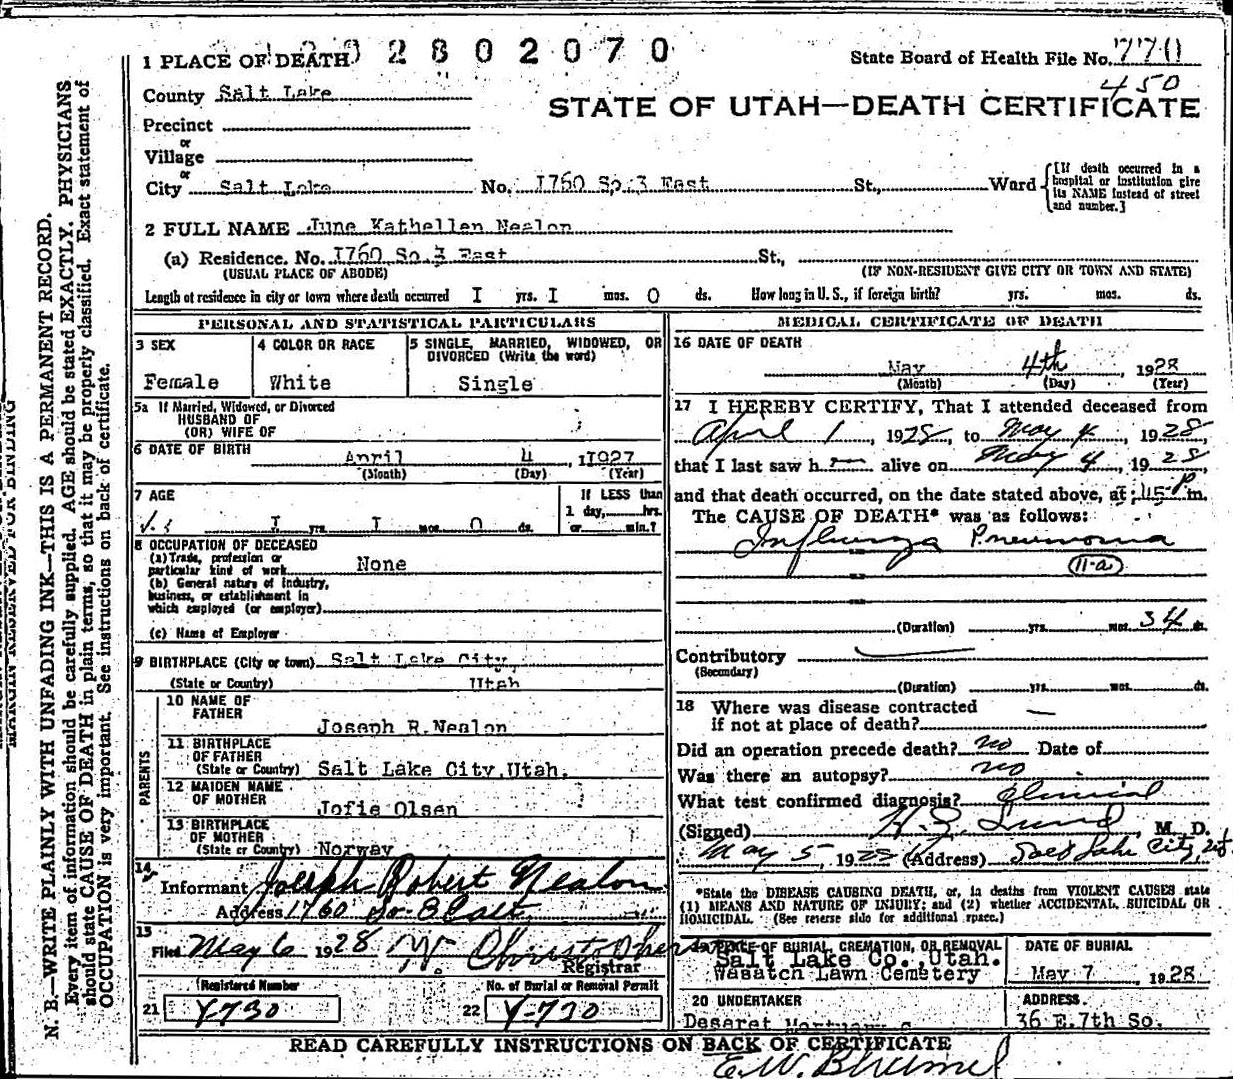 1 PLACE OF DEATH 2802070 State Board of Health File No. 770
450
County Salt Lake
STATE OF UTAH—DEATH CERTIFICATE
Precinct
or
Village
or
City Salt Lake No. I760 So.3 East St., Ward
[If death occurred in a hospital or institution give its NAME instead of street and number.]
2 FULL NAME June Kathellen Nealon
(a) Residence. No. I760 So.3 East St.,
(USUAL PLACE OF ABODE) (IF NON-RESIDENT GIVE CITY OR TOWN AND STATE)
Length of residence in city or town where death occurred I yrs. I mos. 0 ds. How long in U. S., if foreign birth? yrs. mos. ds.
PERSONAL AND STATISTICAL PARTICULARS
3 SEX
Female
4 COLOR OR RACE
White
5 SINGLE, MARRIED, WIDOWED, OR
DIVORCED (Write the word)
Single
5a If Married, Widowed, or Divorced
HUSBAND OF
(OR) WIFE OF
6 DATE OF BIRTH April 4, 1927
(Month) (Day) (Year)
7 AGE
I yrs. I mos. 0 ds.
If LESS than
1 day, hrs.
or min.?
8 OCCUPATION OF DECEASED
(a) Trade, profession or
particular kind of work None
(b) General nature of industry,
business, or establishment in
which employed (or employer)
(c) Name of Employer
9 BIRTHPLACE (City or town) Salt Lake City,
(State or Country) Utah
PARENTS
10 NAME OF
FATHER Joseph R.Nealon
11 BIRTHPLACE
OF FATHER
(State or Country) Salt Lake City,Utah.
12 MAIDEN NAME
OF MOTHER Jofie Olsen
13 BIRTHPLACE
OF MOTHER
(State or Country) Norway
14
Informant Joseph Robert Nealon
Address 1760 So-3 East
15
Filed May 6 1928
Registrar
Registered Number
21 Y-730
No. of Burial or Removal Permit
22 Y-730
MEDICAL CERTIFICATE OF DEATH
16 DATE OF DEATH
May 4th, 1928
(Month) (Day) (Year)
17 I HEREBY CERTIFY, That I attended deceased from
April 1, 1928, to May 4, 1928,
that I last saw h alive on May 4, 1928,
and that death occurred, on the date stated above, at m.
The CAUSE OF DEATH* was as follows:
Influenza Pneumonia
11-a
(Duration) yrs. mos. 34 ds.
Contributory
(Secondary)
(Duration) yrs. mos. ds.
18 Where was disease contracted
if not at place of death?
Did an operation precede death? no Date of
Was there an autopsy? no
What test confirmed diagnosis? Clinical
(Signed) M. D.
May 5, 1928 (Address) Salt Lake City, Ut.
*State the DISEASE CAUSING DEATH, or, in deaths from VIOLENT CAUSES state
(1) MEANS AND NATURE OF INJURY; and (2) whether ACCIDENTAL, SUICIDAL OR
HOMICIDAL. (See reverse side for additional space.)
PLACE OF BURIAL, CREMATION, OR REMOVAL
Salt Lake Co.,Utah.
Wasatch Lawn Cemetery
DATE OF BURIAL
May 7 1928
20 UNDERTAKER
Deseret Mortuary
ADDRESS
36 E.7th So.
READ CAREFULLY INSTRUCTIONS ON BACK OF CERTIFICATE
N. B.—WRITE PLAINLY WITH UNFADING INK—THIS IS A PERMANENT RECORD.
Every item of information should be carefully supplied. AGE should be stated EXACTLY. PHYSICIANS
should state CAUSE OF DEATH in plain terms, so that it may be properly classified. Exact statement of
OCCUPATION is very important. See instructions on back of certificate.